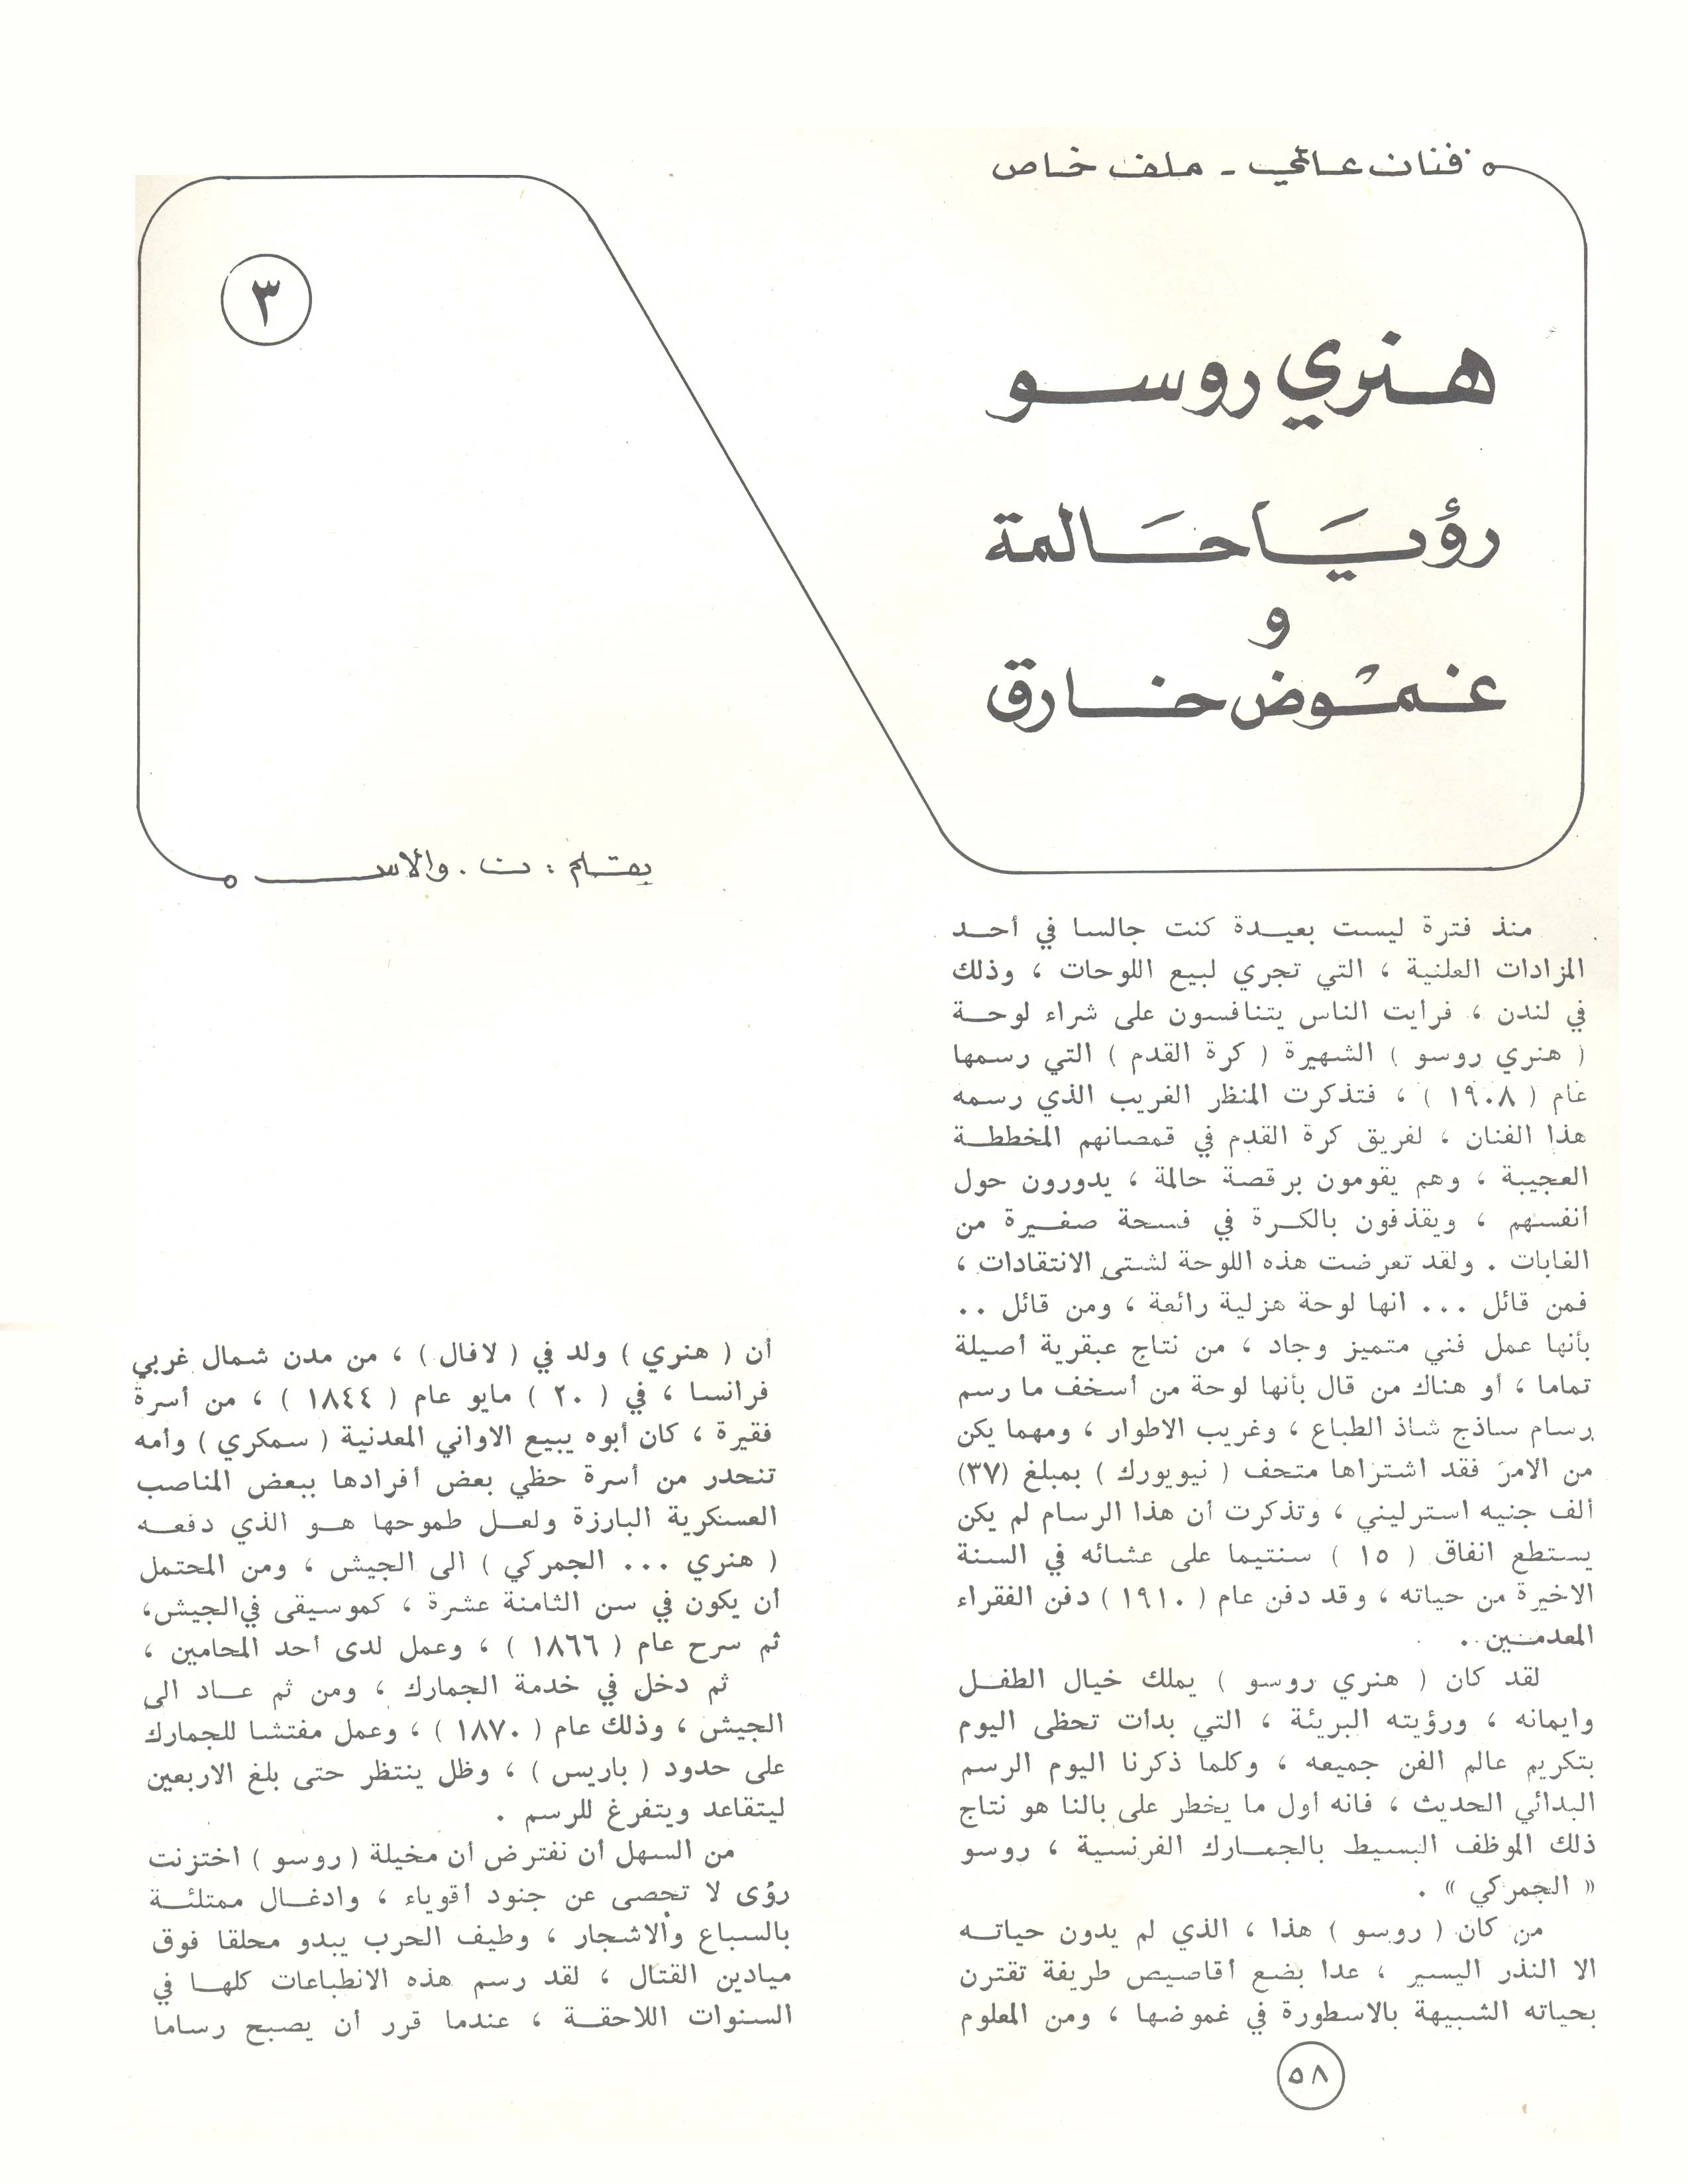 فنان عالمي - ملف خاص
٣
هنري روسو
رؤيا حالمة
و
غموض خارق
بقلم : ن . والاس
منذ فترة ليست بعيدة كنت جالسا في أحد
المزادات العلنية ، التي تجري لبيع اللوحات ، وذلك
في لندن ، فرايت الناس يتنافسون على شراء لوحة
( هنري روسو ) الشهيرة ( كرة القدم ) التي رسمها
عام ( ١٩٠٨ ) ، فتذكرت المنظر الغريب الذي رسمه
هذا الفنان ، لفريق كرة القدم في قمصانهم المخططة
العجيبة ، وهم يقومون برقصة حالمة ، يدورون حول
أنفسهم ، ويقذفون بالكرة في فسحة صغيرة من
الغابات . ولقد تعرضت هذه اللوحة لشتى الانتقادات ،
فمن قائل ... انها لوحة هزلية رائعة ، ومن قائل ..
بأنها عمل فني متميز وجاد ، من نتاج عبقرية أصيلة
تماما ، أو هناك من قال بأنها لوحة من أسخف ما رسم
رسام ساذج شاذ الطباع ، وغريب الاطوار ، ومهما يكن
من الامر فقد اشتراها متحف ( نيويورك ) بمبلغ (٣٧)
ألف جنيه استرليني ، وتذكرت أن هذا الرسام لم يكن
يستطع انفاق ( ١٥ ) سنتيما على عشائه في السنة
الاخيرة من حياته ، وقد دفن عام ( ١٩١٠ ) دفن الفقراء
المعدمين .
لقد كان ( هنري روسو ) يملك خيال الطفل
وايمانه ، ورؤيته البريئة ، التي بدأت تحظى اليوم
بتكريم عالم الفن جميعه ، وكلما ذكرنا اليوم الرسم
البدائي الحديث ، فانه أول ما يخطر على بالنا هو نتاج
ذلك الموظف البسيط بالجمارك الفرنسية ، روسو
« الجمركي » .
من كان ( روسو ) هذا ، الذي لم يدون حياته
الا النذر اليسير ، عدا بضع أقاصيص طريفة تقترن
بحياته الشبيهة بالاسطورة في غموضها ، ومن المعلوم
أن ( هنري ) ولد في ( لافال ) ، من مدن شمال غربي
فرانسا ، في ( ٢٠ ) مايو عام ( ١٨٤٤ ) ، من أسرة
فقيرة ، كان أبوه يبيع الاواني المعدنية ( سمكري ) وأمه
تنحدر من أسرة حظي بعض أفرادها ببعض المناصب
العسكرية البارزة ولعل طموحها هو الذي دفعه
( هنري ... الجمركي ) الى الجيش ، ومن المحتمل
أن يكون في سن الثامنة عشرة ، كموسيقى في الجيش،
ثم سرح عام ( ١٨٦٦ ) ، وعمل لدى أحد المحامين ،
ثم دخل في خدمة الجمارك ، ومن ثم عاد الى
الجيش ، وذلك عام ( ١٨٧٠ ) ، وعمل مفتشا للجمارك
على حدود ( باريس ) ، وظل ينتظر حتى بلغ الاربعين
ليتقاعد ويتفرغ للرسم .
من السهل أن نفترض أن مخيلة ( روسو ) اختزنت
رؤى لا تحصى عن جنود أقوياء ، وادغال ممتلئة
بالسباع والاشجار ، وطيف الحرب يبدو محلقا فوق
ميادين القتال ، لقد رسم هذه الانطباعات كلها في
السنوات اللاحقة ، عندما قرر أن يصبح رساما
٥٨